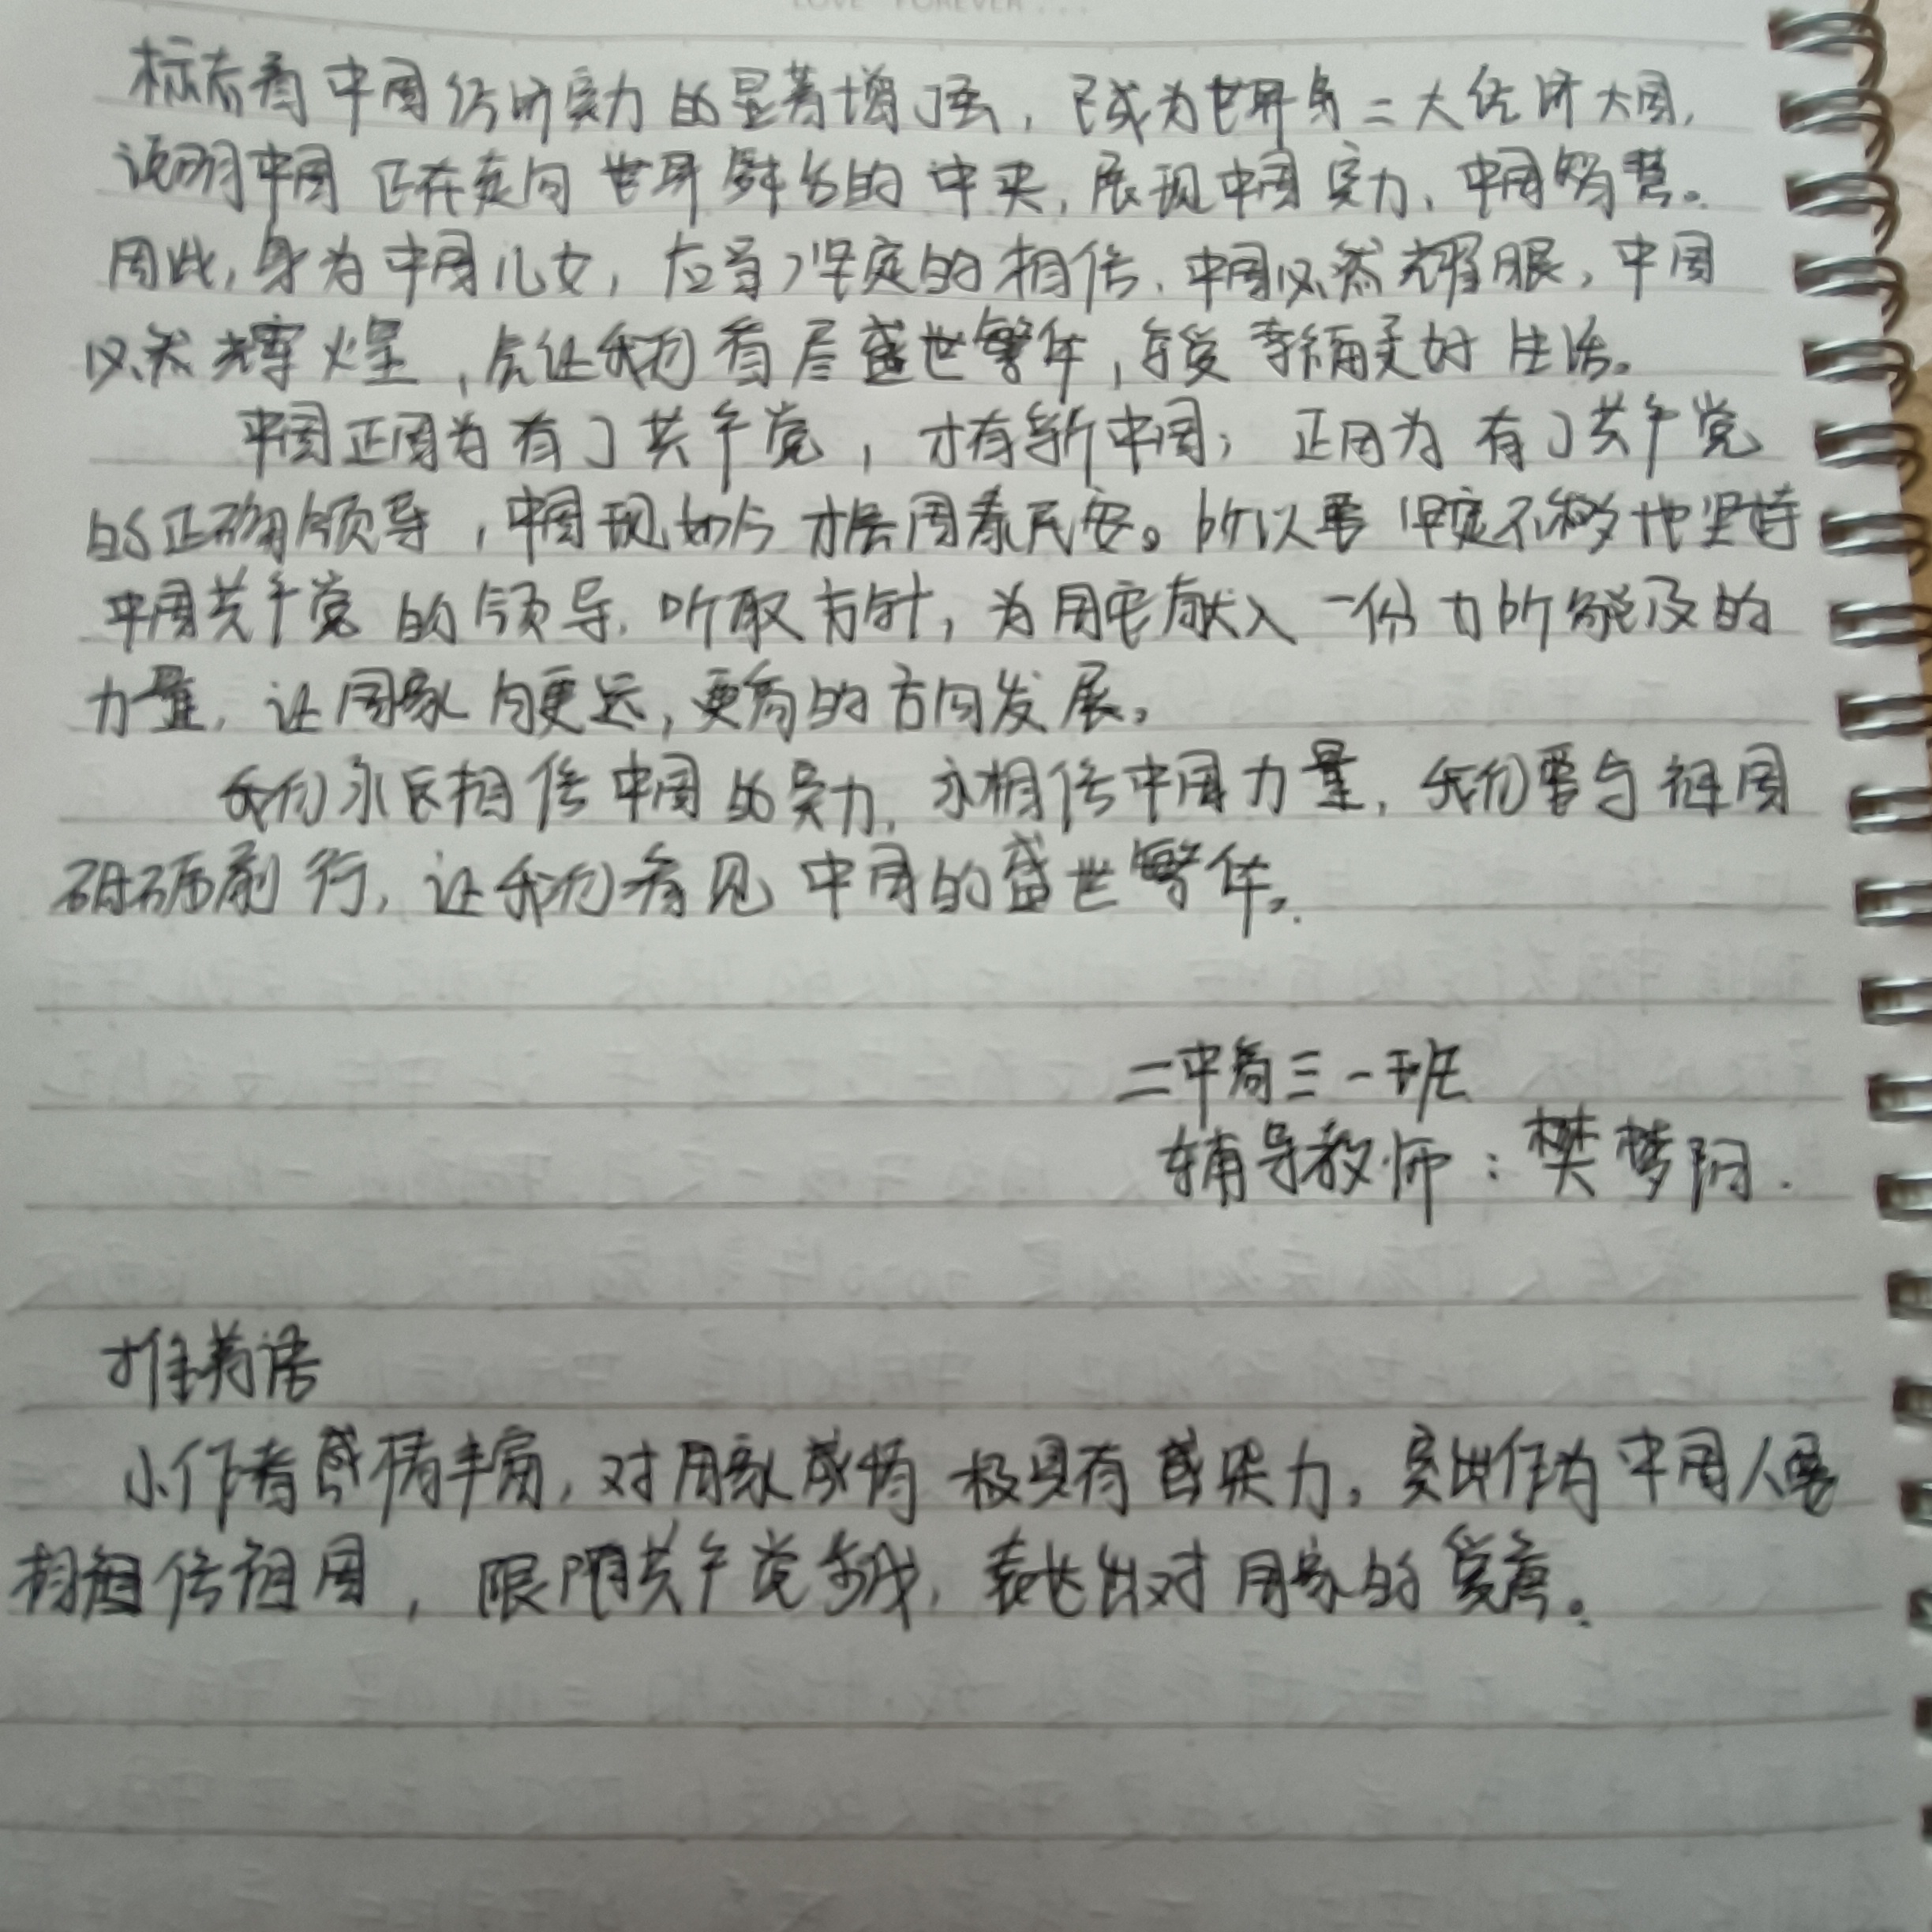 LOVE FOREVER...
标志着中国经济实力的显著增强，已成为世界第二大经济大国，
说明中国正在走向世界舞台的中央，展现中国实力、中国智慧。
因此，身为中国儿女，应当坚定的相信，中国必然耀眼，中国
必然辉煌，会让我们看尽盛世繁华，享受幸福美好生活。
中国正因为有了共产党，才有新中国；正因为有了共产党
的正确领导，中国现如今才会国泰民安。所以要坚定不移地坚持
中国共产党的领导，听取方针，为国家献入一份力所能及的
力量，让国家向更远，更高的方向发展。
我们永远相信中国的实力，永相信中国力量，我们要与祖国
砥砺前行，让我们看见中国的盛世繁华。
二中高三一班
辅导教师：樊梦阳.
推荐语
小作者感情丰富，对国家感情极具有感染力。突出作为中国人要
相信祖国，跟随共产党步伐，表达出对国家的爱意。